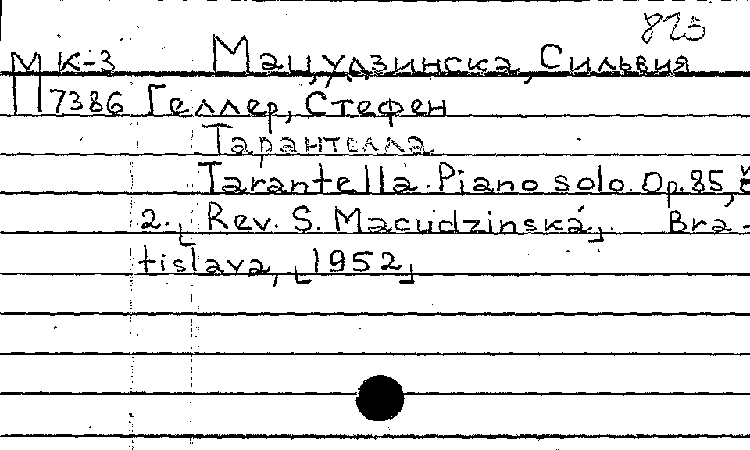 823
М К-3 Мацудзинска, Сильвия
7386 Геллер, Стефен
Тарантелла
Tarantella. Piano solo. Op. 85, č
2. [Rev. S. Macudzinská]. Bra-
tislava, [1952]